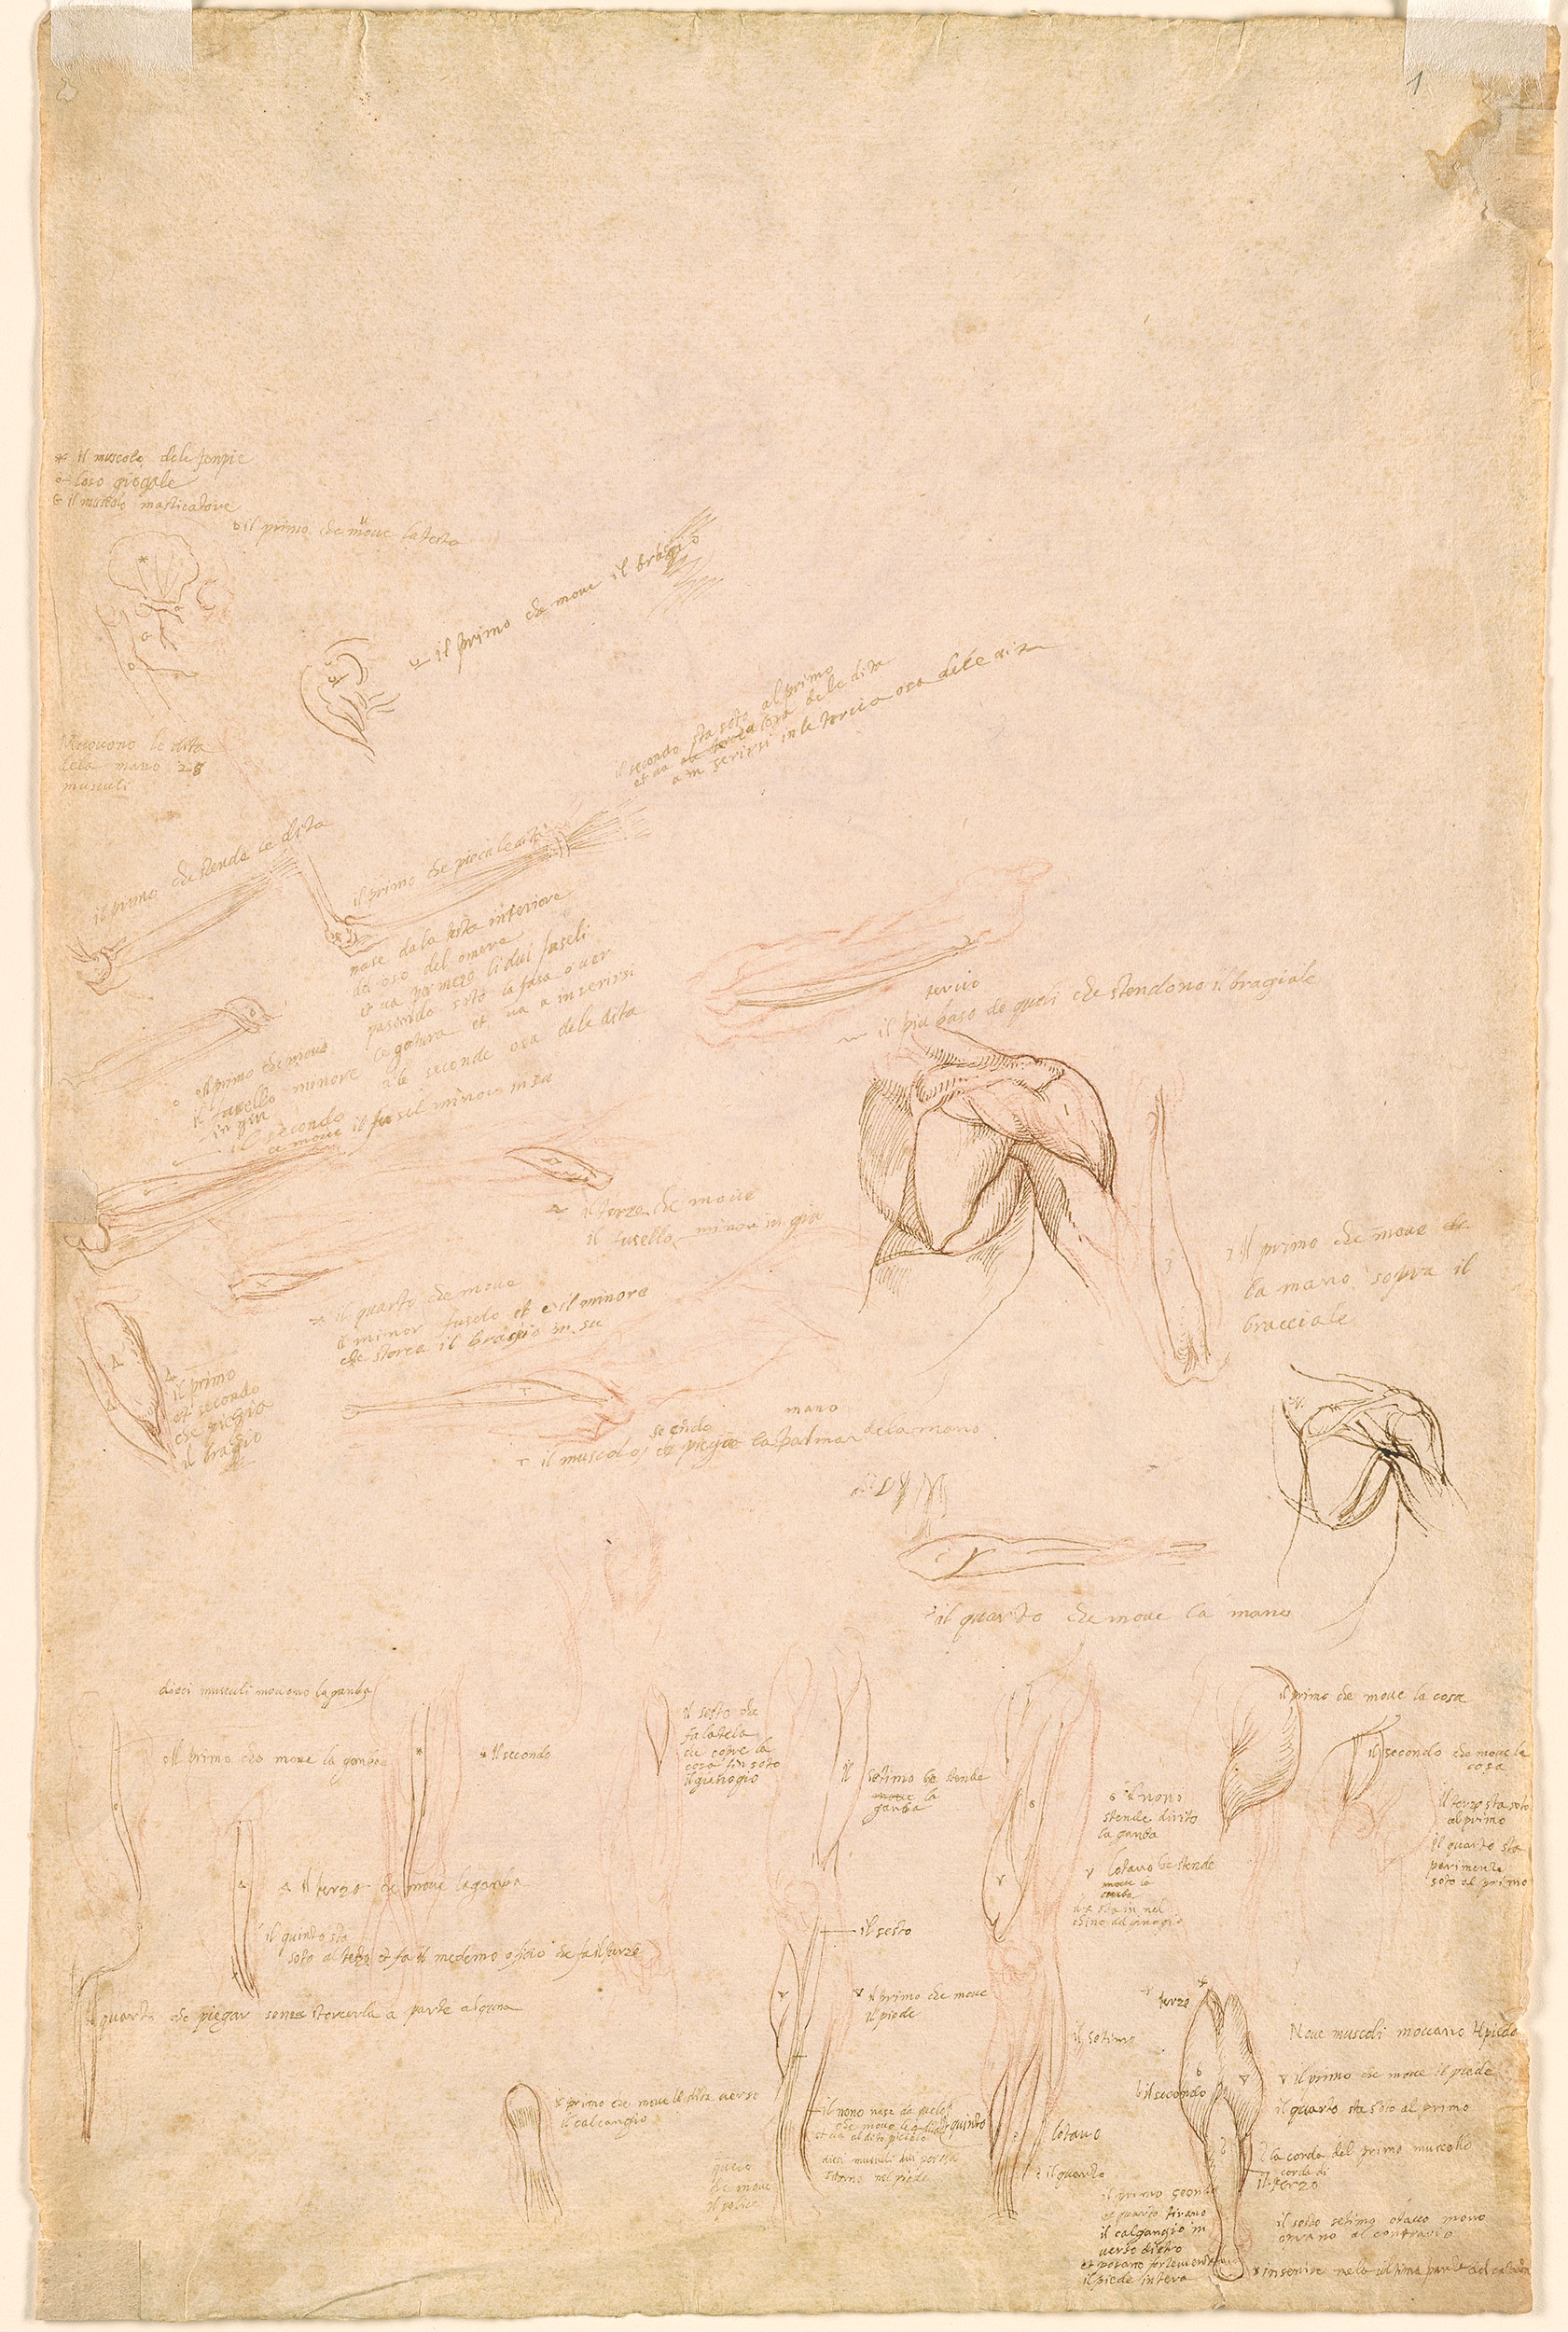 1
* il muscolo dele tenpie
o loso giogale
G il muscolo masticatore
b il primo che move la testa
il primo che move il bragio
il secondo sta soto al primo
et va losa dele dita
a in serirsi in le tercia osa dele dita
Movono le dita
dela mano 28
musculi
il primo che stende le dita
il primo che piega le dita
nase dala testa inferiore
del oso del omero
et va per mezo li dui fuseli
pasando soto la fasa over
legatura et va a inserirsi
ale seconde osa dele dita
o il primo che move
il fusello minore
in giu
il secondo
che move il fusel minore in su
tercio
il piu baso de queli che stendono il bragiale
il terzo che move
il fusello minore in giu
3 il primo che move
la mano sopra il
bracciale
il quarto che move
il minor fuselo et e il minore
che storca il bragio in su
il primo
et secondo
che piegia
il bragio
secondo mano
il muscolo che piega la palma dela mano
il quarto che move la mano
dieci musculi movano la ganba
il primo che move la ganba
* il secondo
il sesto che
fa la tela
che copre la
cosa fin soto
il gienogio
il setimo che stende
move la
ganba
8 il nono
stende dirito
la ganba
il primo che move la cosa
il secondo che move la
cosa
il terzo sta soto
al primo
il quarto sta
parimente
soto al primo
il terzo che move la ganba
v lotavo che stende
move la
ganba
il quinto sta
soto al terzo et fa il medemo ofitio che fa il terzo
il quarto che piegar senza storcerla a parte alguna
il sesto
v il primo che move
il piede
il setimo
terzo
Nove muscoli movano il piede
v il primo che move il piede
il quarto sta soto al primo
b il secondo
il primo che move le dita verso
il calcangio
il nono nase da quelo
che move le dita
et va al dito picolo
quinto
lotavo
il quarto
dieci musculi
nel piede
quelo
che move
il police
la corda del primo muscolo
corda di
il terzo
il primo secondo
et quarto tirano
il calgangio in
verso dietro
et posano fortemente
il piede in tera
il sesto setimo otavo nono
oprano al contrario
inserire nela ultima parte del